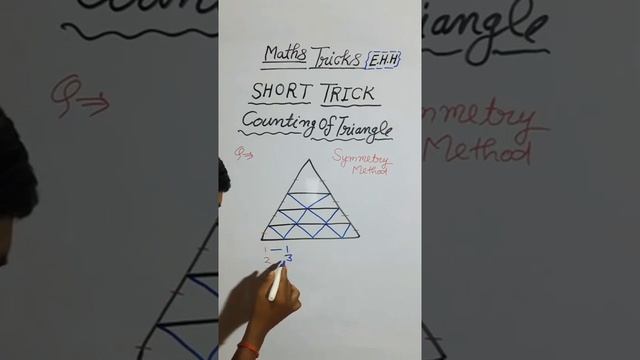 Maths Tricks {E.H.H}
SHORT TRICK
Counting Of Triangle
Q⇒ Symmetry
Method
1 — 1
2 3